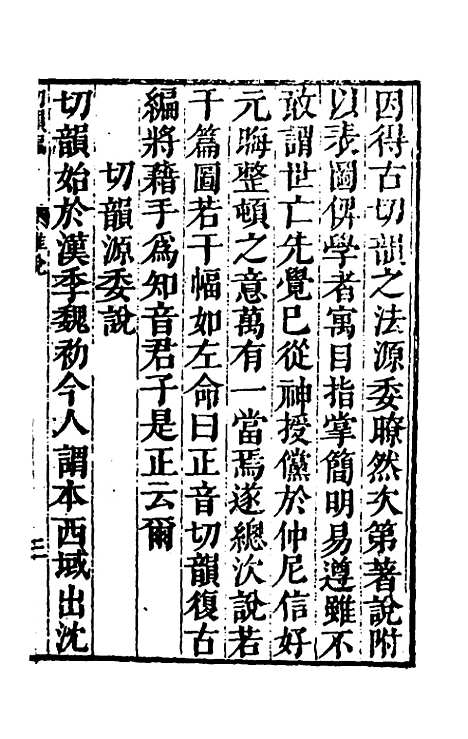 因得古切韻之法源委暸然次第著說附
以表圖俾學者寓目指掌簡明易遵雖不
敢謂世亡先覺已從神授儻於仲尼信好
元晦整頓之意萬有一當焉遂總次說若
干篇圖若干幅如左命曰正音切韻復古
編將藉手爲知音君子是正云爾
切韻源委說
切韻始於漢季魏初今人謂本西域出沈
三